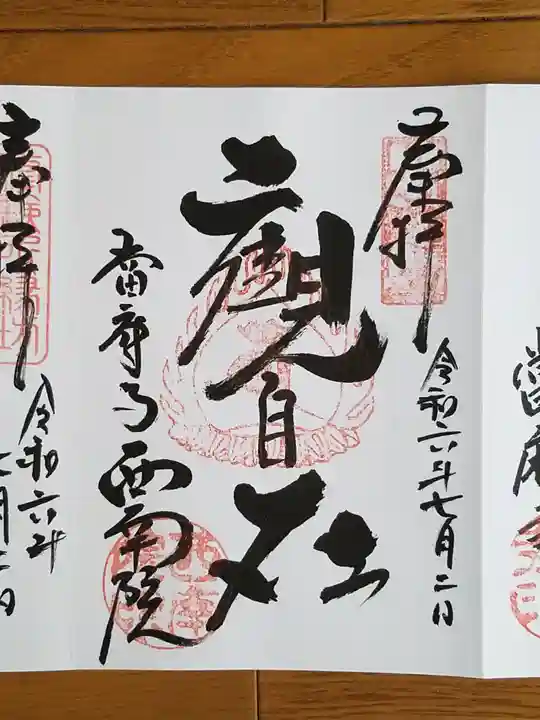 當麻
奉拝
令和六年七月二日
觀自在
當麻寺西南院
奉拝
令和六年
七月二日